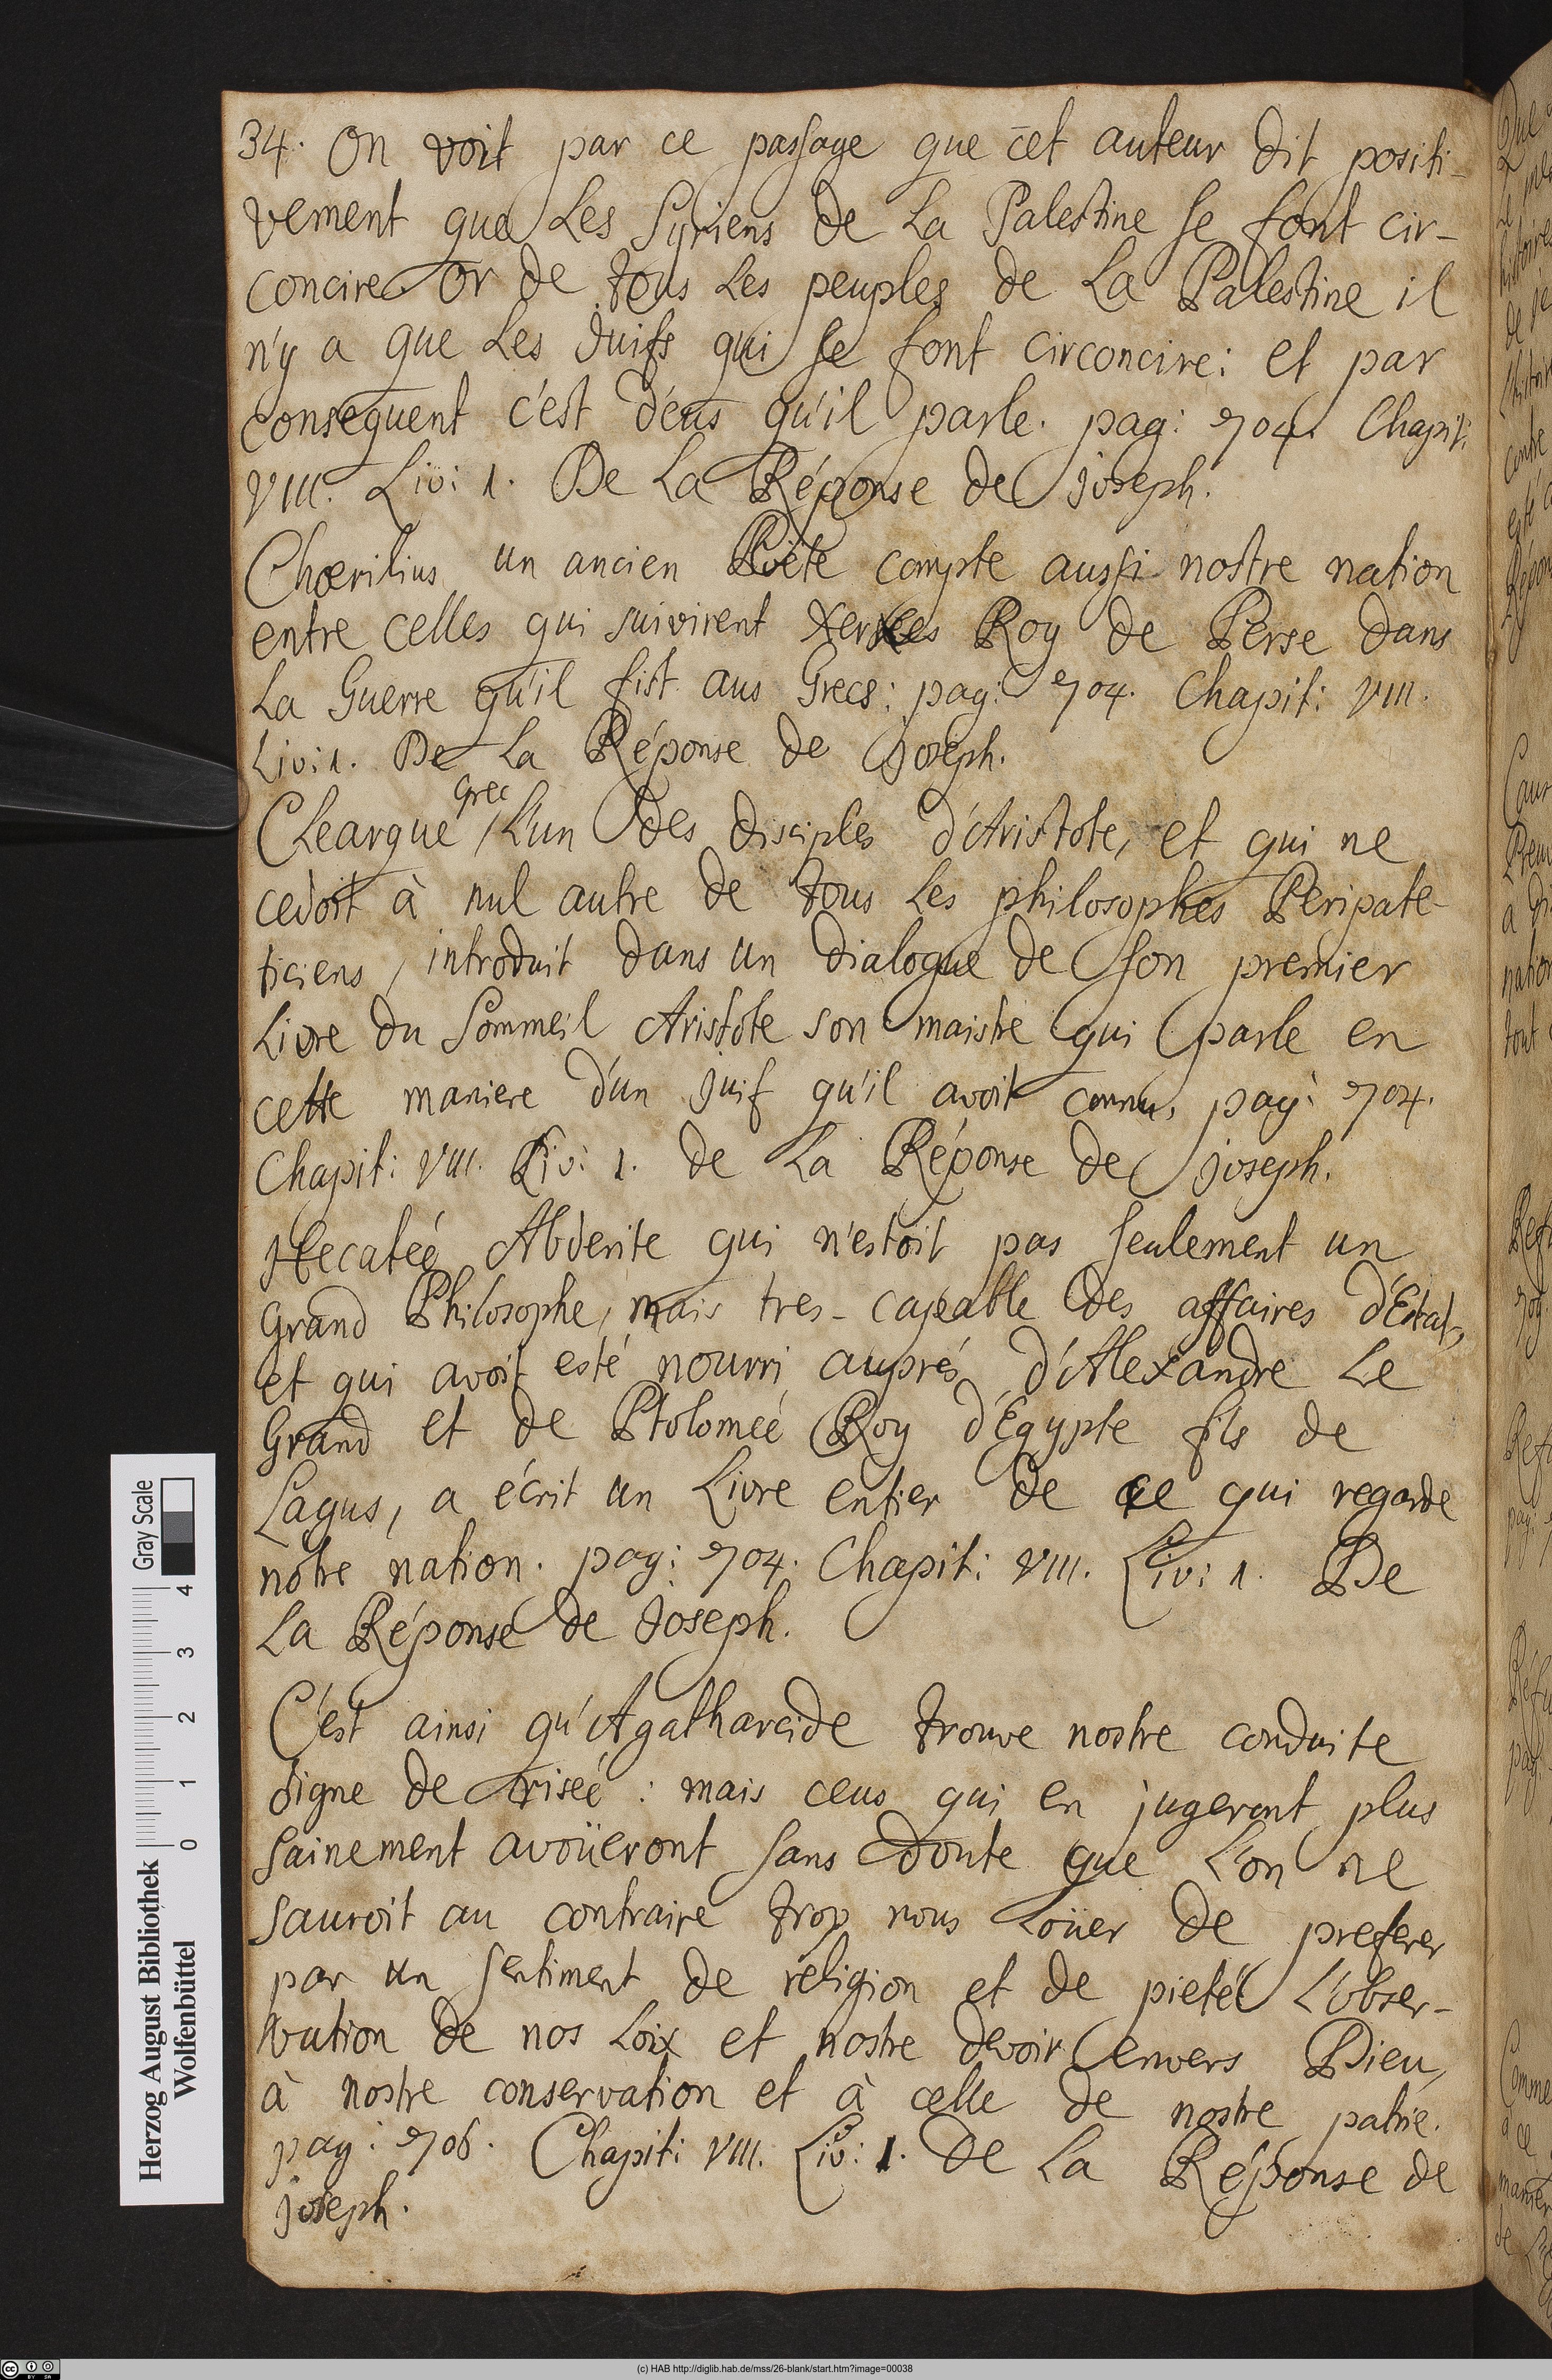 34. On voit par ce passage que cet auteur dit positi-
vement que Les Syriens de La Palestine se font cir-
concire. Or de tous Les peuples de La Palestine il
n'y a que Les Juifs qui se font circoncire: et par
consequent c'est d'eus qu'il parle. pag: 704. Chapit:
VIII. Liv: 1. De La Réponse de joseph.
Choerilius un ancien Poëte compte aussi nostre nation
entre celles qui suivirent Xerxes Roy de Perse dans
La Guerre qu'il fist aus Grecs: pag: 704. Chapit: VIII.
Liv: 1. De La Réponse de joseph.
Grec
Clearque, L'un des disciples d'Aristote, et qui ne
cedoit à nul autre de tous Les philosophes Peripate-
ticiens, introduit dans un dialogue de son premier
Livre du Sommeil Aristote son maistre qui parle en
cette maniere d'un juif qu'il avoit connu, pag: 704.
Chapit: VIII. Liv: 1. de La Réponse de joseph.
Hecateé Abderite qui n'estoit pas seulement un
grand Philosophe, mais tres-capable des affaires d'Estat,
et qui avoit esté nourri auprés d'Alexandre Le
Grand et de Ptolomeé Roy d'Egypte fils de
Lagus, a écrit un Livre entier de ce qui regarde
nôtre nation. pag: 704. Chapit: VIII. Liv: 1. De
La Réponse de Joseph.
C'est ainsi qu'Agatharcide trouve nostre conduite
digne de riseé: mais ceus qui en jugeront plus
sainement avoüeront sans doute que L'on ne
sauroit au contraire trop nous Loüer de preferer
par un sentiment de religion et de pieté L'obser-
vation de nos Loix et nostre devoir envers Dieu,
à nostre conservation et à celle de nostre patrie.
pag: 706. Chapit: VIII. Liv: 1. De La Réponse de
joseph.
Gray Scale
4 3 2 1 0
Herzog August Bibliothek
Wolfenbüttel
(c) HAB http://diglib.hab.de/mss/26-blank/start.htm?image=00038